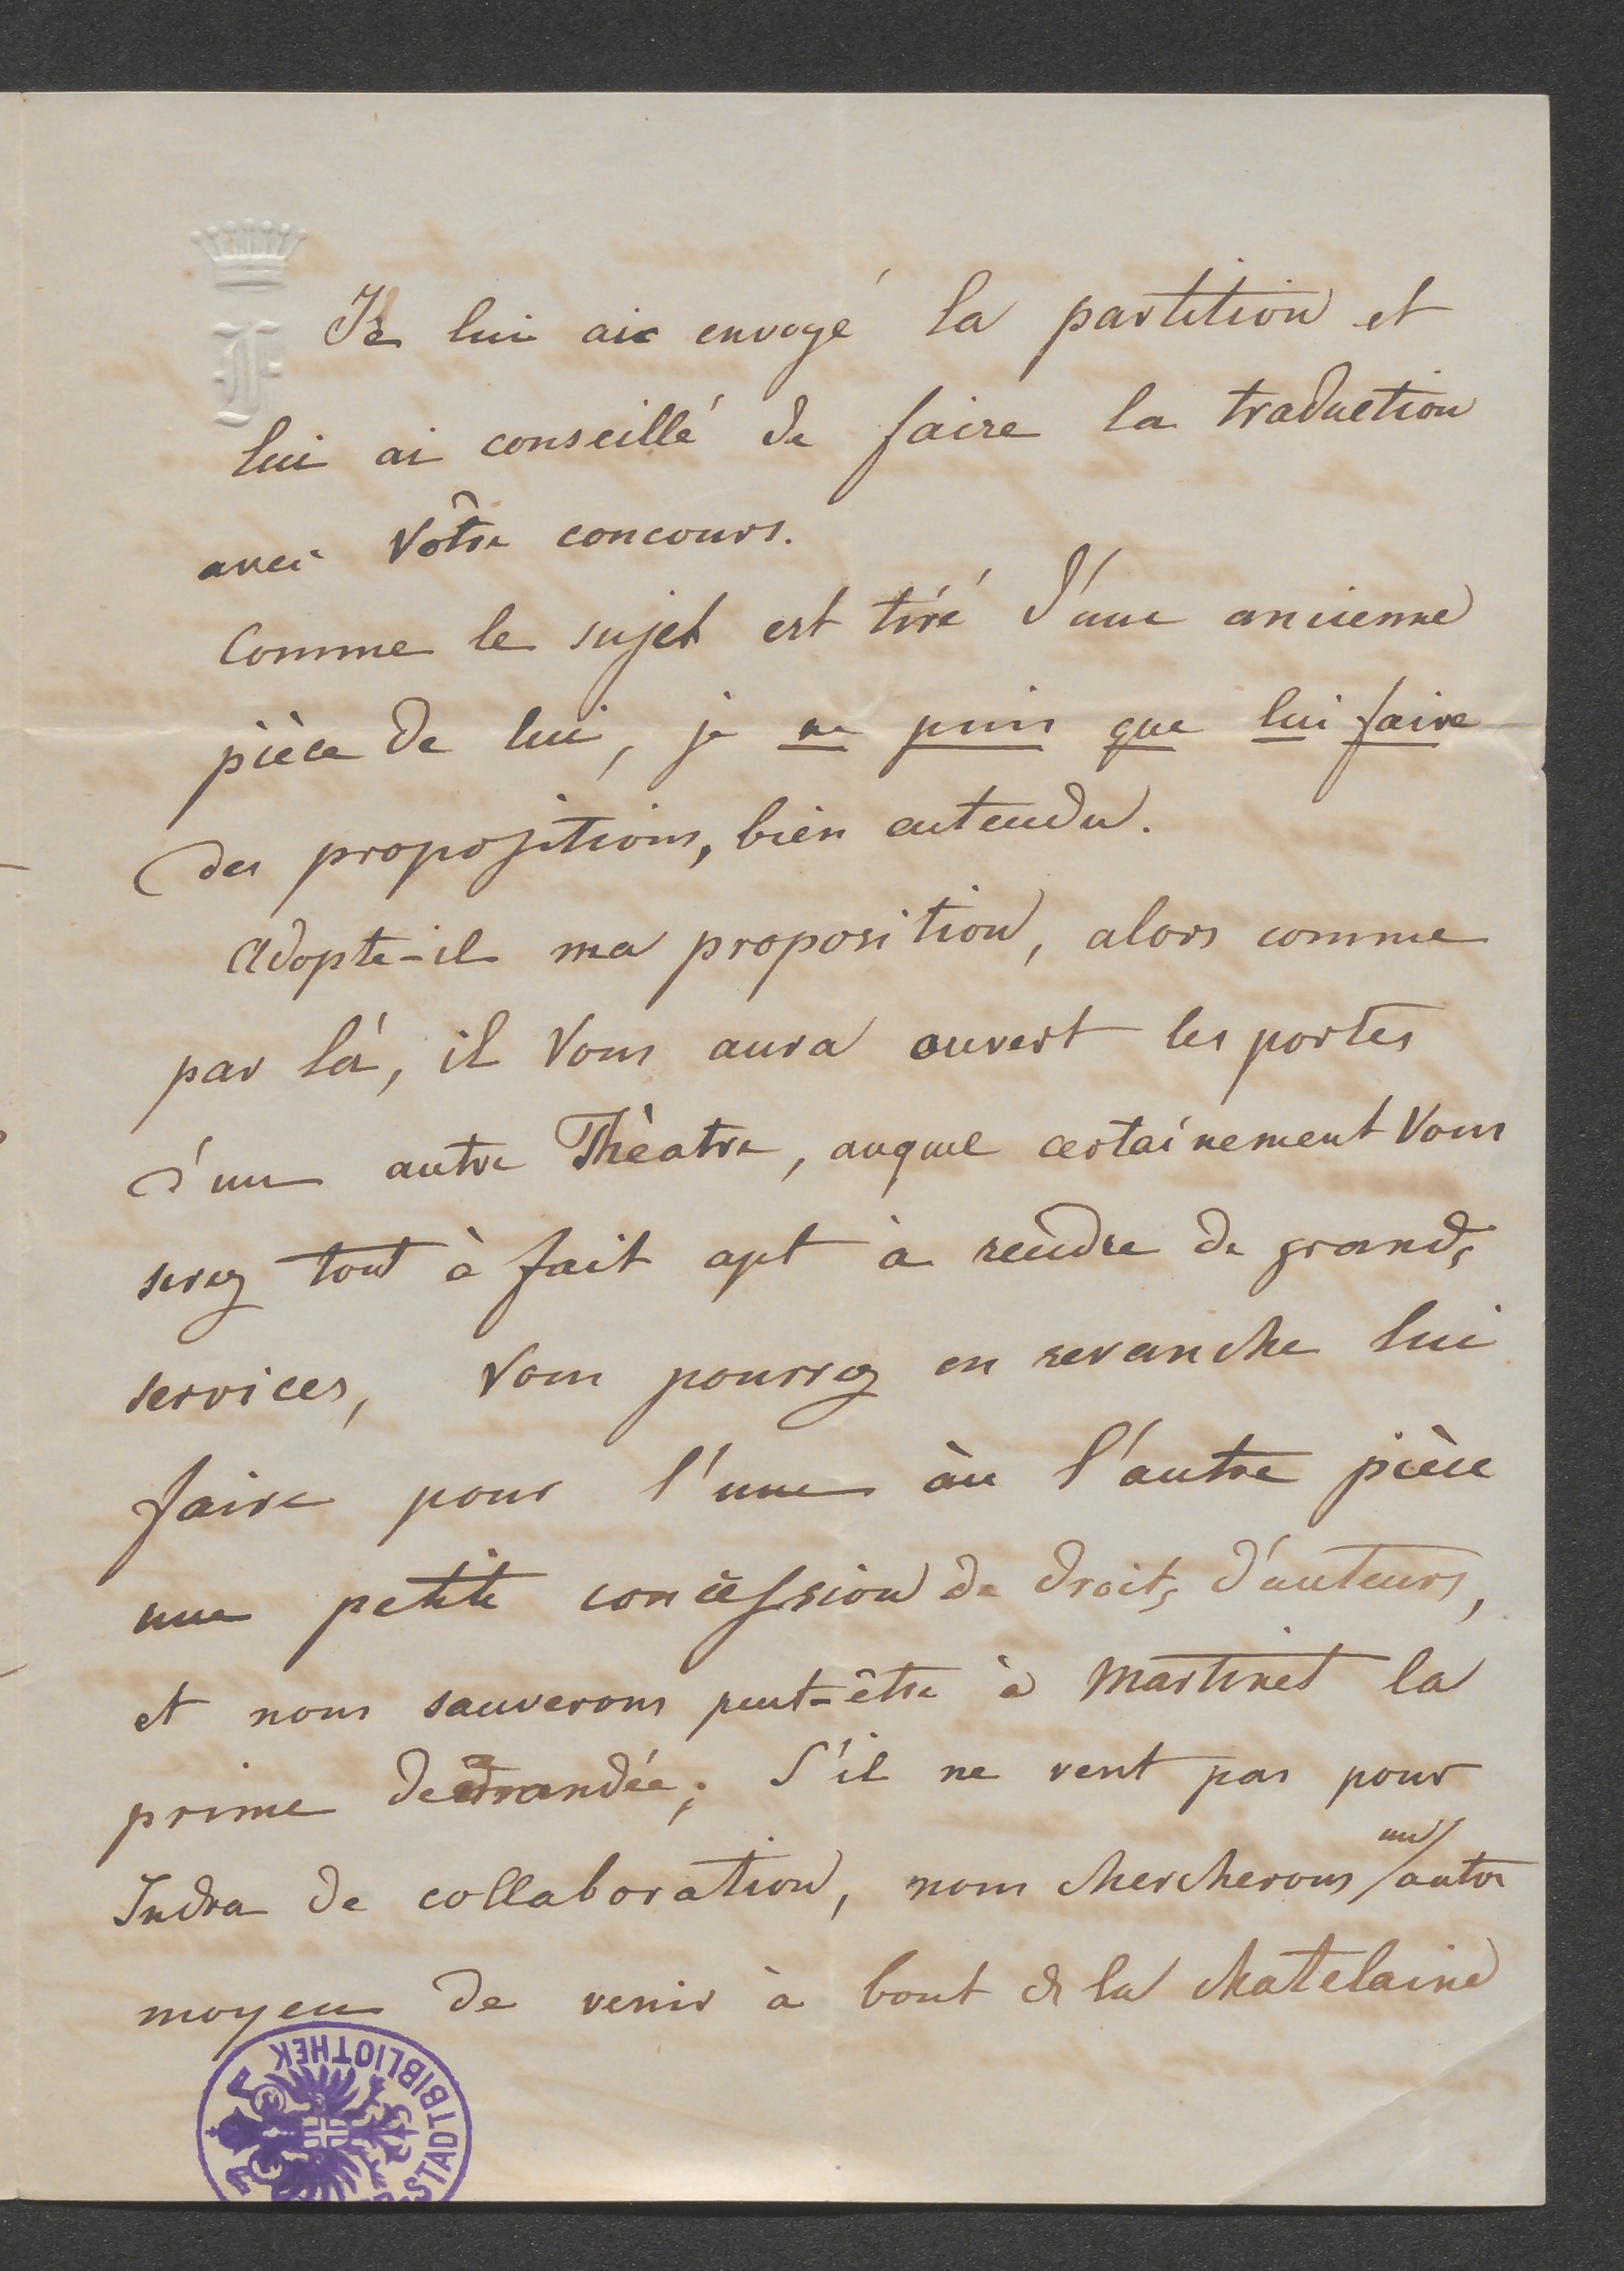 F
Je lui ai envoyé la partition et
lui ai conseillé de faire la traduction
avec Vôtre concours.
Comme le sujet est tiré d'une ancienne
pièce de lui, je ne puis que lui faire
des propositions, bien entendu.
Adopte-il ma proposition, alors comme
par là, il Vous aura ouvert les portes
d'un autre Thèatre, auquel certainement Vous
serez tout à fait apt à rendre de grands
services, Vous pourrez en revanche lui
faire pour l'une ou l'autre pièce
une petite concession de droits d'auteurs,
et nous sauverons peut-être à Martinet la
prime demandée; S'il ne veut pas pour
Indra de collaboration, nous chercherons un autre
moyen de venir à bout de la chatelaine
STADTBIBLIOTHEK